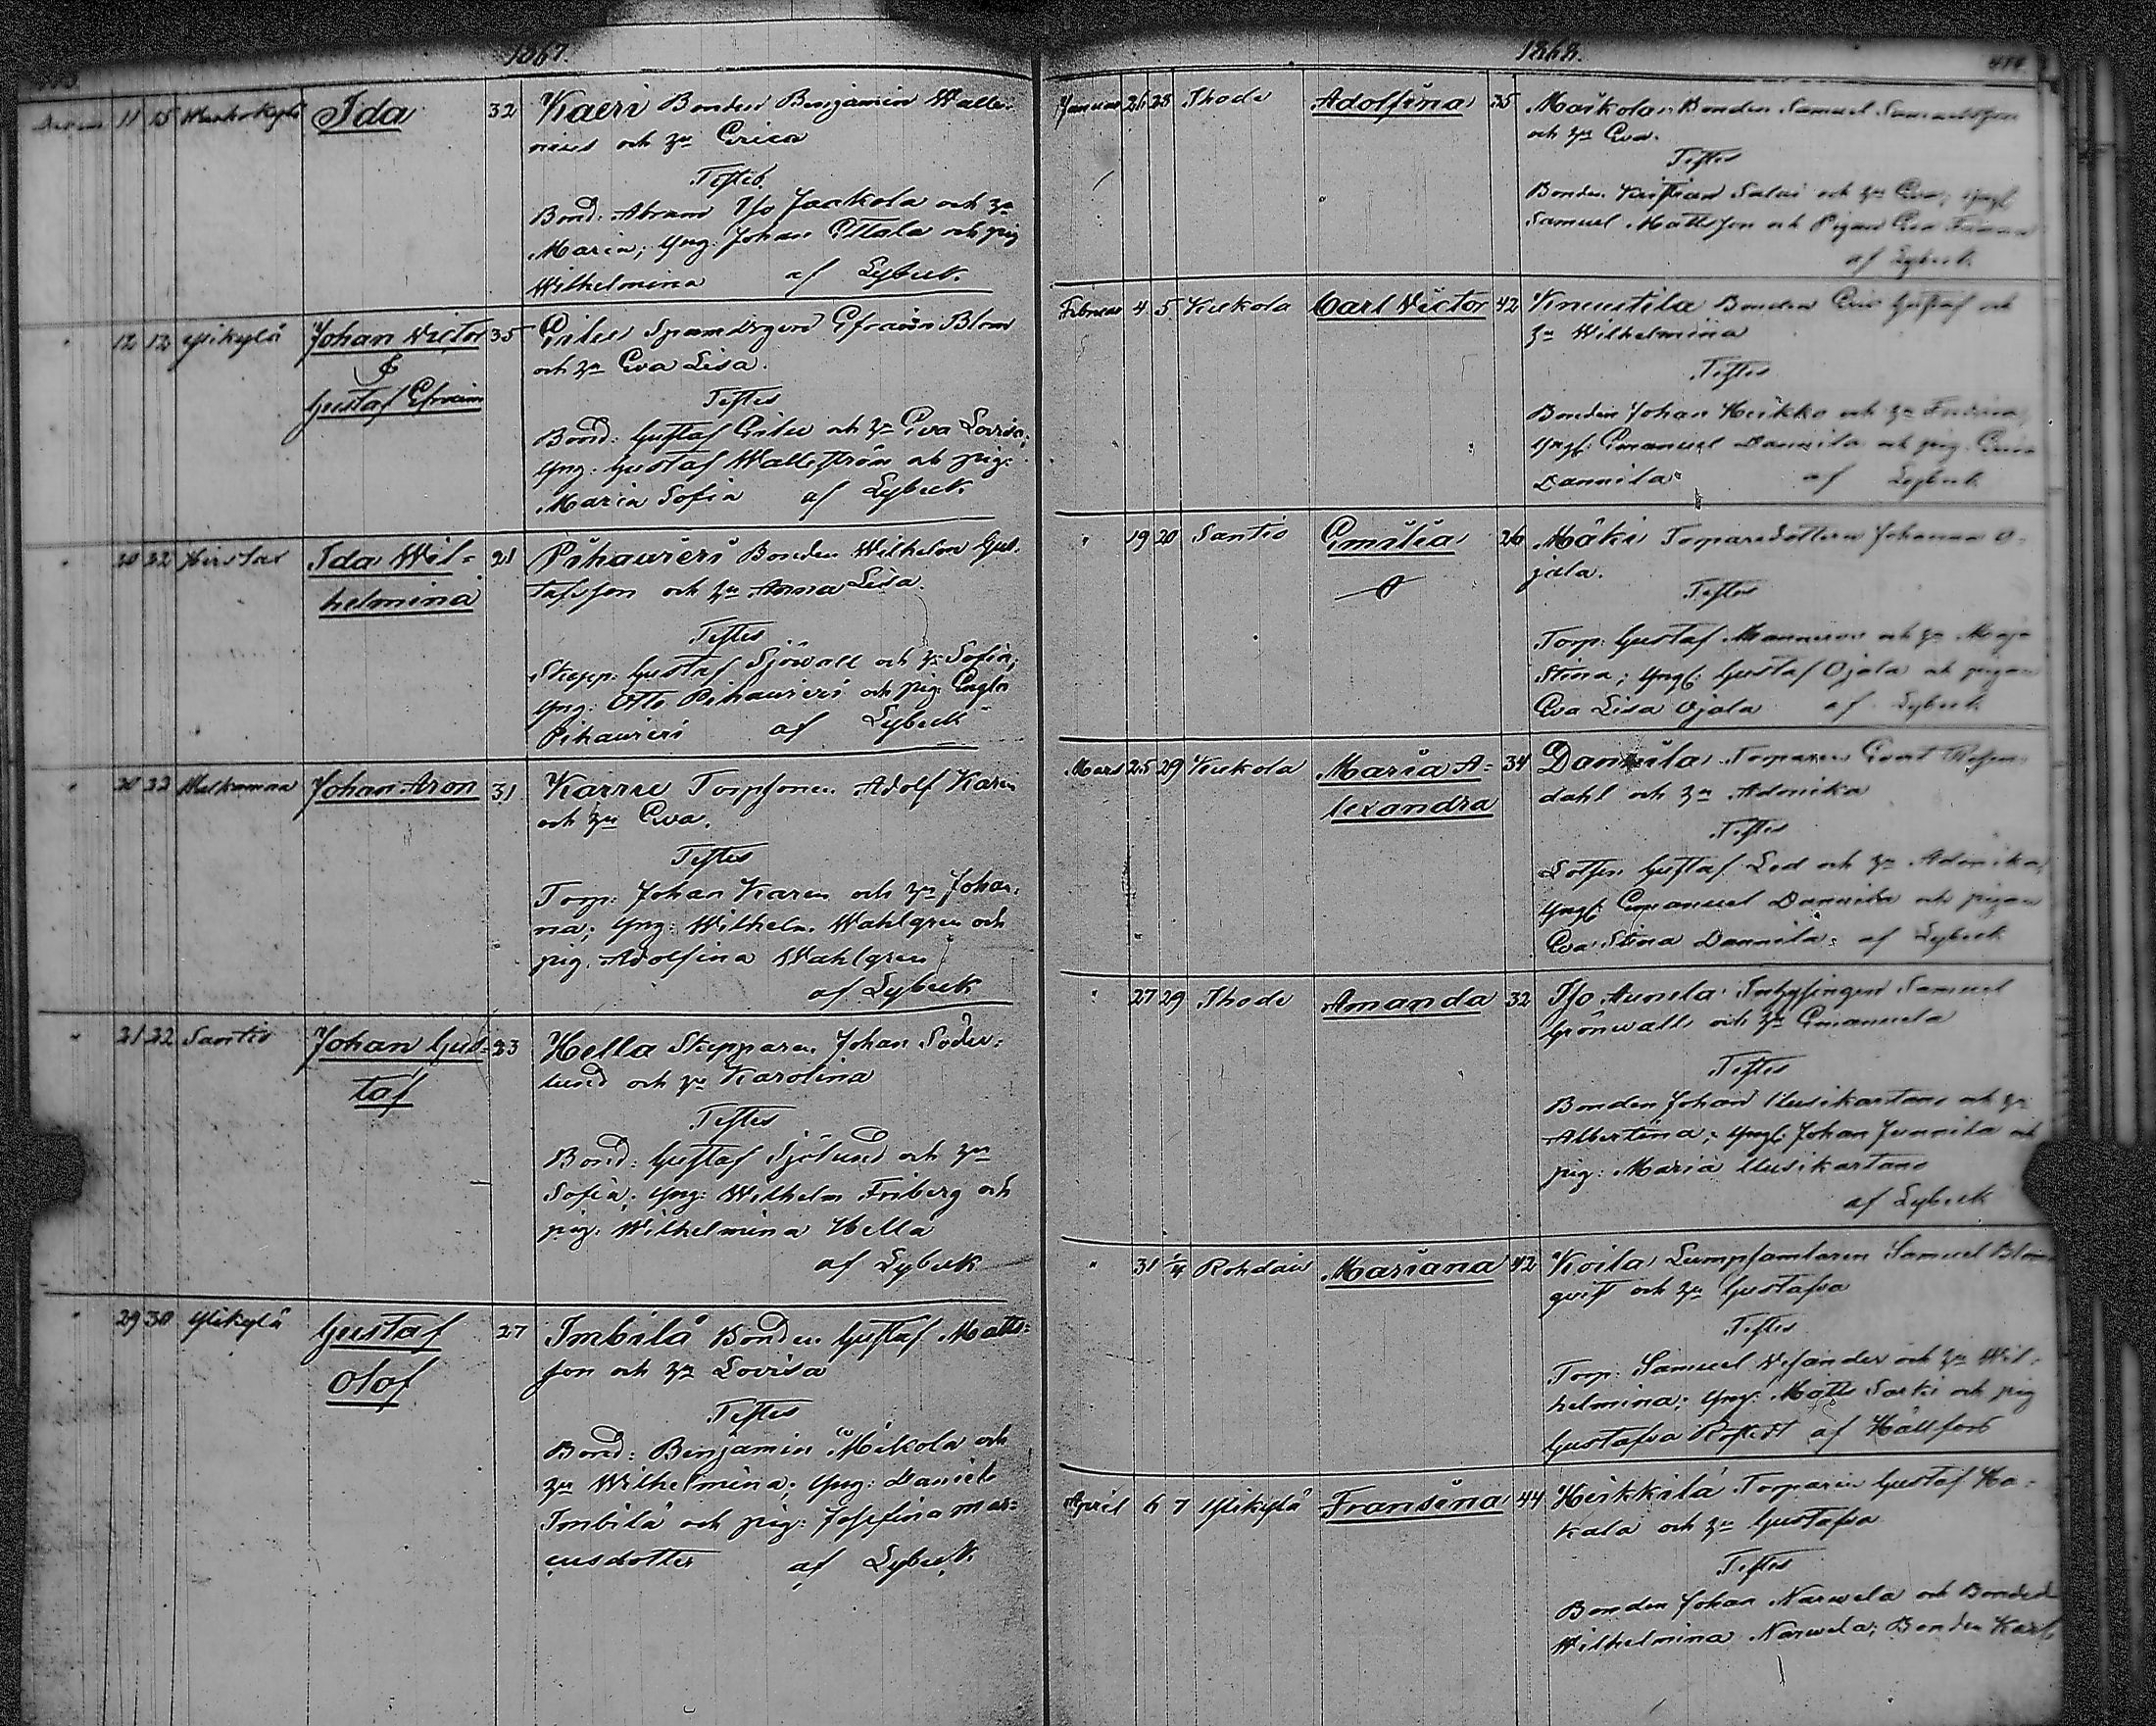 1867.
11 15 Ida 32 Kaeri Bonden Benjamin Walle-
nius och hu Erica
Testes.
Bond: Abram Iso Jaakkola och hu
Maria; yng. Johan Ettala och pig
Wilhelmina af Lybeck.
" 12 12 Ylikylä Johan Victor 35 Eriln Spanndrgaren Efraim Blom
& och hu Eva Lisa.
Gustaf Efraim Testes
Bond: Gustaf och hu Eva Lovisa;
yng: Gustaf Wallström och pig:
Maria Sofia af Lybeck.
" 20 22 Ida Wil- 21 Pihauveri Bonden Wilhelm Gus-
helmina tafsson och hu Anna Lisa.
Testes
Skepp: Gustaf Sjöwall och hu Sofia;
yng: Otto Pihauveri och pig: Engla
Pihauveri af Lybeck
" 22 Johan Aron 31 Karru Torpsonen Adolf Karen
och hu Eva.
Testes
Torp: Johan Karen och hu Johan-
na; yng: Wilhelm Wahlgren och
pig. Adolfina Wahlgren
af Lybeck
" 21 22 Santio Johan Gus- 23 Hella Skepparen Johan Söder-
taf lund och hu Karolina
Testes
Bond: Gustaf Sjölund och hu
Sofia; yng: Wilhelm Friberg och
pig: Wilhelmina Hella
af Lybeck
" 29 30 Ylikylä Gustaf 27 Imbilä Bonden Gustaf Matts-
Olof son och hu Lovisa
Testes
Bond: Benjamin Mikola och
hu Wilhelmina; yng: Daniel
Imbilä och pig: Josefina Mar-
cusdotter af Lybeck.
1868.
Januari 21 23 Thode Adolfina 35 Maikola Bonden Samuel Samuelsson
och hu Eva.
Testes
Bonden Kristian Salai och hu Eva; yngl
Samuel Mattsson och Pigan Eva
af Lybeck.
Februari 4 5 Kukola Carl Victor 42 Knuutila Bonden Eric Gustaf och
hu Wilhelmina
Testes
Bonden Johan Heikko och hu
yngl: Emanuel Dannila och pig.
Dannila af Lybeck
" 19 20 Santio Emilia 26 Mäki Torparedottern Johanna O-
jala.
Testes
Torp: Gustaf och hu Maja
Stina; yngl: Gustaf Ojala och pigan
Eva Lisa Ojala af Lybeck
Mars 25 29 Kukola Maria A- 34 Dannila Torparen Evert Rosen-
lexandra dahl och hu Adonika
Testes
Lotsen Gustaf Lod och hu Adonika,
yngl: Emanuel Dannila och pigan
Eva Stina Dannila: af Lybeck
" 27 29 Thode Amanda 32 Iso Aunela Inhysingen Samuel
Grönwall och hu Emanuela
Testes
Bonden Johan Uusikartano och hu
Albertina; yngl: Johan Junnila och
pig: Maria Uusikartano
af Lybeck
" 31 1/4 Rohdais Mariana 42 Koila Lumpsamlaren Samuel Blom-
quist och hu Gustafva
Testes
Torp: Samuel och hu Wil-
helmina; yng: Matts Sarki och pig
Gustafva af Hällfors
April 6 7 Ylikylä Fransina 44 Heikkilä Torparen Gustaf Ha-
kala och hu Gustafva
Testes
Bonden Johan Narwela och
Wilhelmina Narwela; Bonden Karl